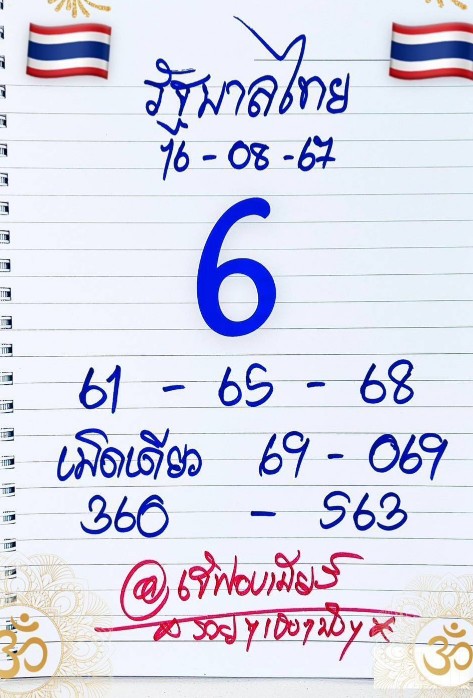 รัฐบาลไทย
16-08-67
6
61 - 65 - 68
เม็ดเดียว 69 - 069
360 - 563
@เจ๊ฟองเบียร์
× รวยๆเฮงๆปังๆ ×